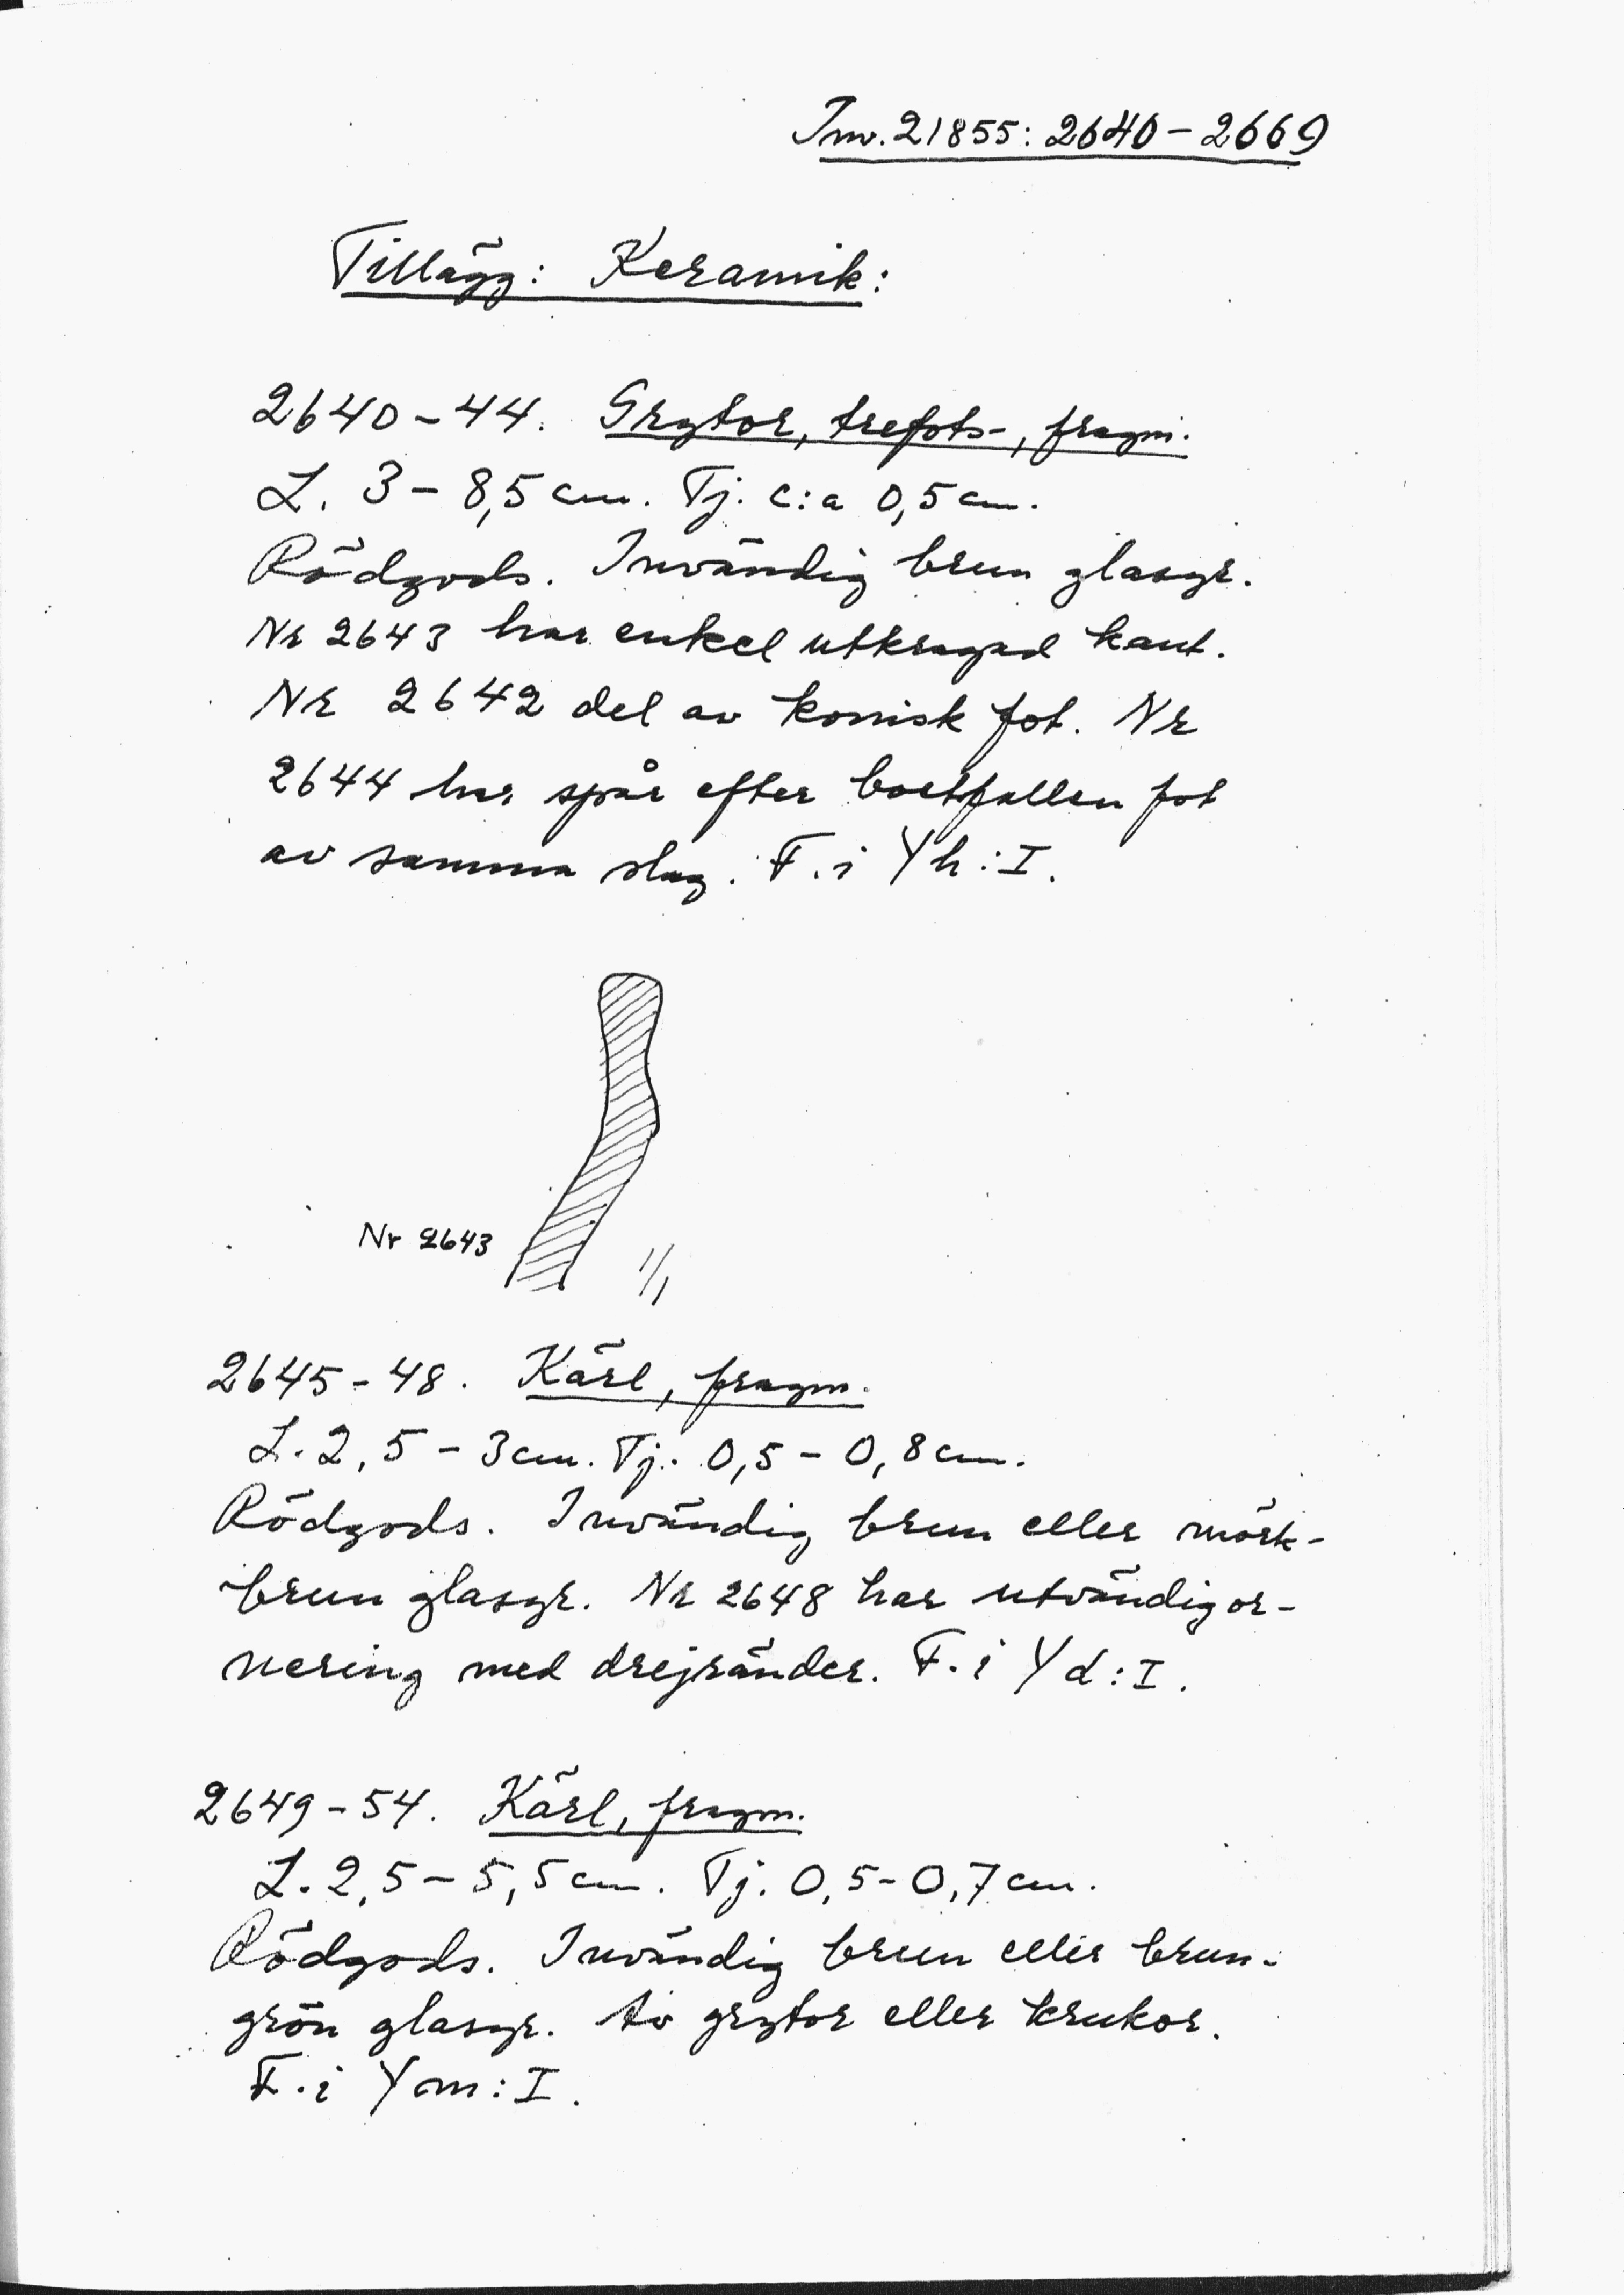 Inv. 21855: 2640 - 2669
Tillägg: Keramik:
2640-44. Grytor, trefots-, fragm.
L. 3 - 8,5 cm. Tj. c:a 0,5 cm.
Rödgods. Invändig brun glasyr.
Nr 2643 har enkel utkragad kant.
Nr 2642 del av konisk fot. Nr
2644 har spår efter bortfallen fot
av samma slag. F. i Yh:I.
Nr 2643
1/1
2645-48. Kärl, fragm.
L. 2,5 - 3 cm. Tj. 0,5 - 0,8 cm.
Rödgods. Invändig brun eller mörk-
brun glasyr. Nr 2648 har utvändig or-
nering med drejränder. F. i Yd:I.
2649-54. Kärl, fragm.
L. 2,5 - 5,5 cm. Tj. 0,5 - 0,7 cm.
Rödgods. Invändig brun eller brun-
grön glasyr. Av grytor eller krukor.
F. i Ym:I.